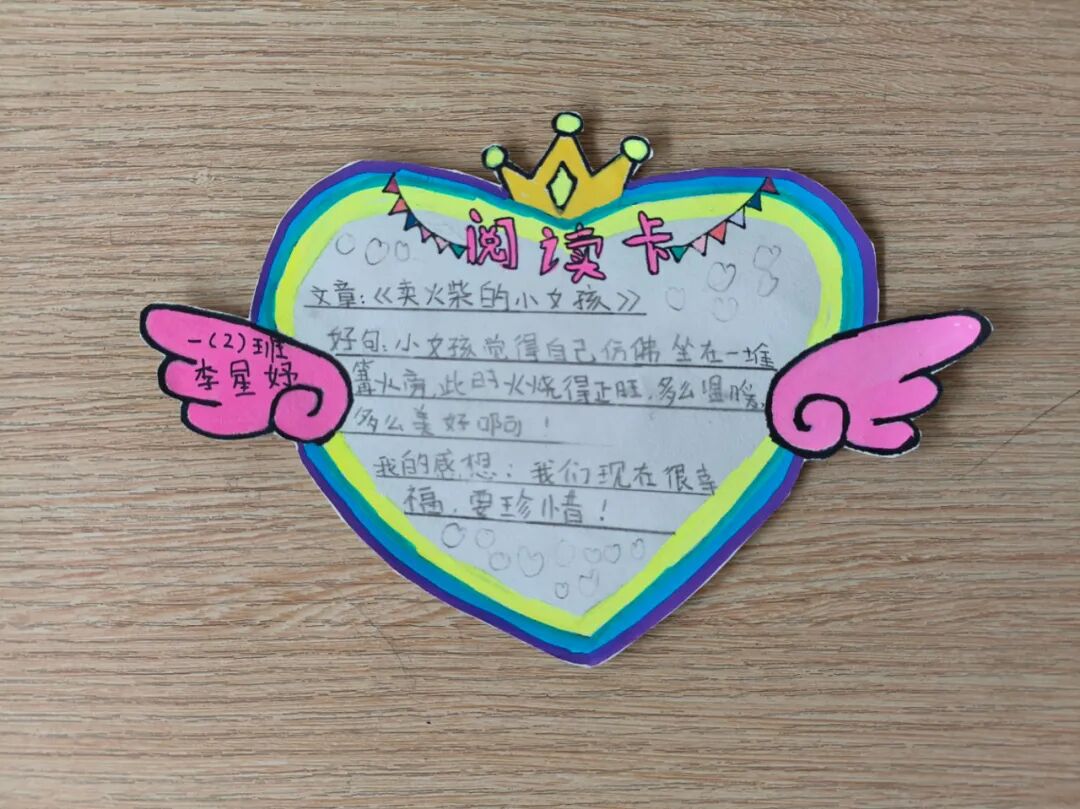 阅读卡
文章:《卖火柴的小女孩》
一(2)班
李星妤
好句:小女孩觉得自己仿佛坐在一堆
篝火旁,此时火烧得正旺,多么温暖,
多么美好啊!
我的感想:我们现在很幸
福,要珍惜!